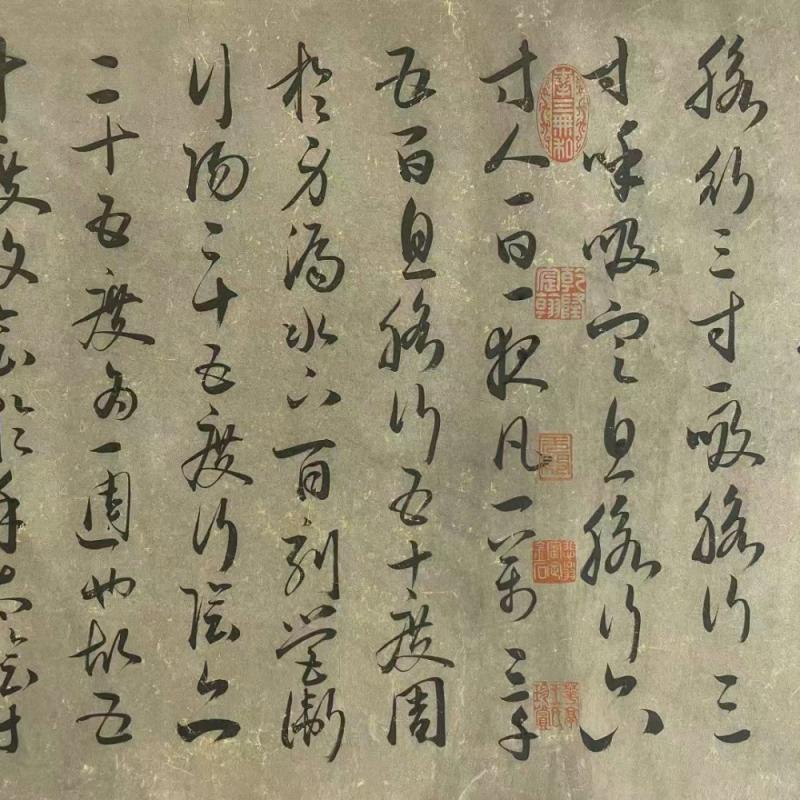 脈行三寸一吸脈行三
寸呼吸定息脈行六
寸人一日一夜凡一萬三千
五百息脈行五十度周
於身漏水下百刻營衛
行陽二十五度行陰亦
二十五度為一週也故五
十度復會於手太陰寸
乾隆宸翰